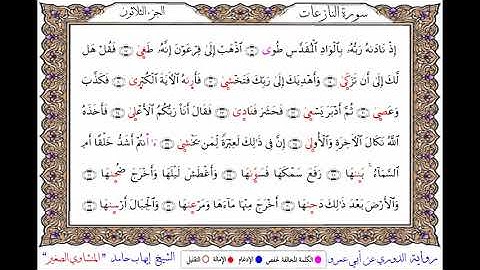 سورة النازعات
الجزء الثلاثون
إِذْ نَادَىٰهُ رَبُّهُۥ بِٱلْوَادِ ٱلْمُقَدَّسِ طُوَى ٱذْهَبْ إِلَىٰ فِرْعَوْنَ إِنَّهُۥ طَغَىٰ فَقُلْ هَل
لَّكَ إِلَىٰ أَن تَزَكَّىٰ وَأَهْدِيَكَ إِلَىٰ رَبِّكَ فَتَخْشَىٰ فَأَرَىٰهُ ٱلْآيَةَ ٱلْكُبْرَىٰ فَكَذَّبَ
وَعَصَىٰ ثُمَّ أَدْبَرَ يَسْعَىٰ فَحَشَرَ فَنَادَىٰ فَقَالَ أَنَا رَبُّكُمُ ٱلْأَعْلَىٰ فَأَخَذَهُ
ٱللَّهُ نَكَالَ ٱلْآخِرَةِ وَٱلْأُولَىٰ إِنَّ فِي ذَٰلِكَ لَعِبْرَةً لِّمَن يَخْشَىٰ ءَاَنتُمْ أَشَدُّ خَلْقًا أَمِ
ٱلسَّمَآءُ بَنَىٰهَا رَفَعَ سَمْكَهَا فَسَوَّىٰهَا وَأَغْطَشَ لَيْلَهَا وَأَخْرَجَ ضُحَىٰهَا
وَٱلْأَرْضَ بَعْدَ ذَٰلِكَ دَحَىٰهَا أَخْرَجَ مِنْهَا مَآءَهَا وَمَرْعَىٰهَا وَٱلْجِبَالَ أَرْسَىٰهَا
رواية الدوري عن أبي عمرو الكلمة المخالفة لحفص الإدغام الإمالة التقليل الشيخ إيهاب حامد "المنشاوي الصغير"